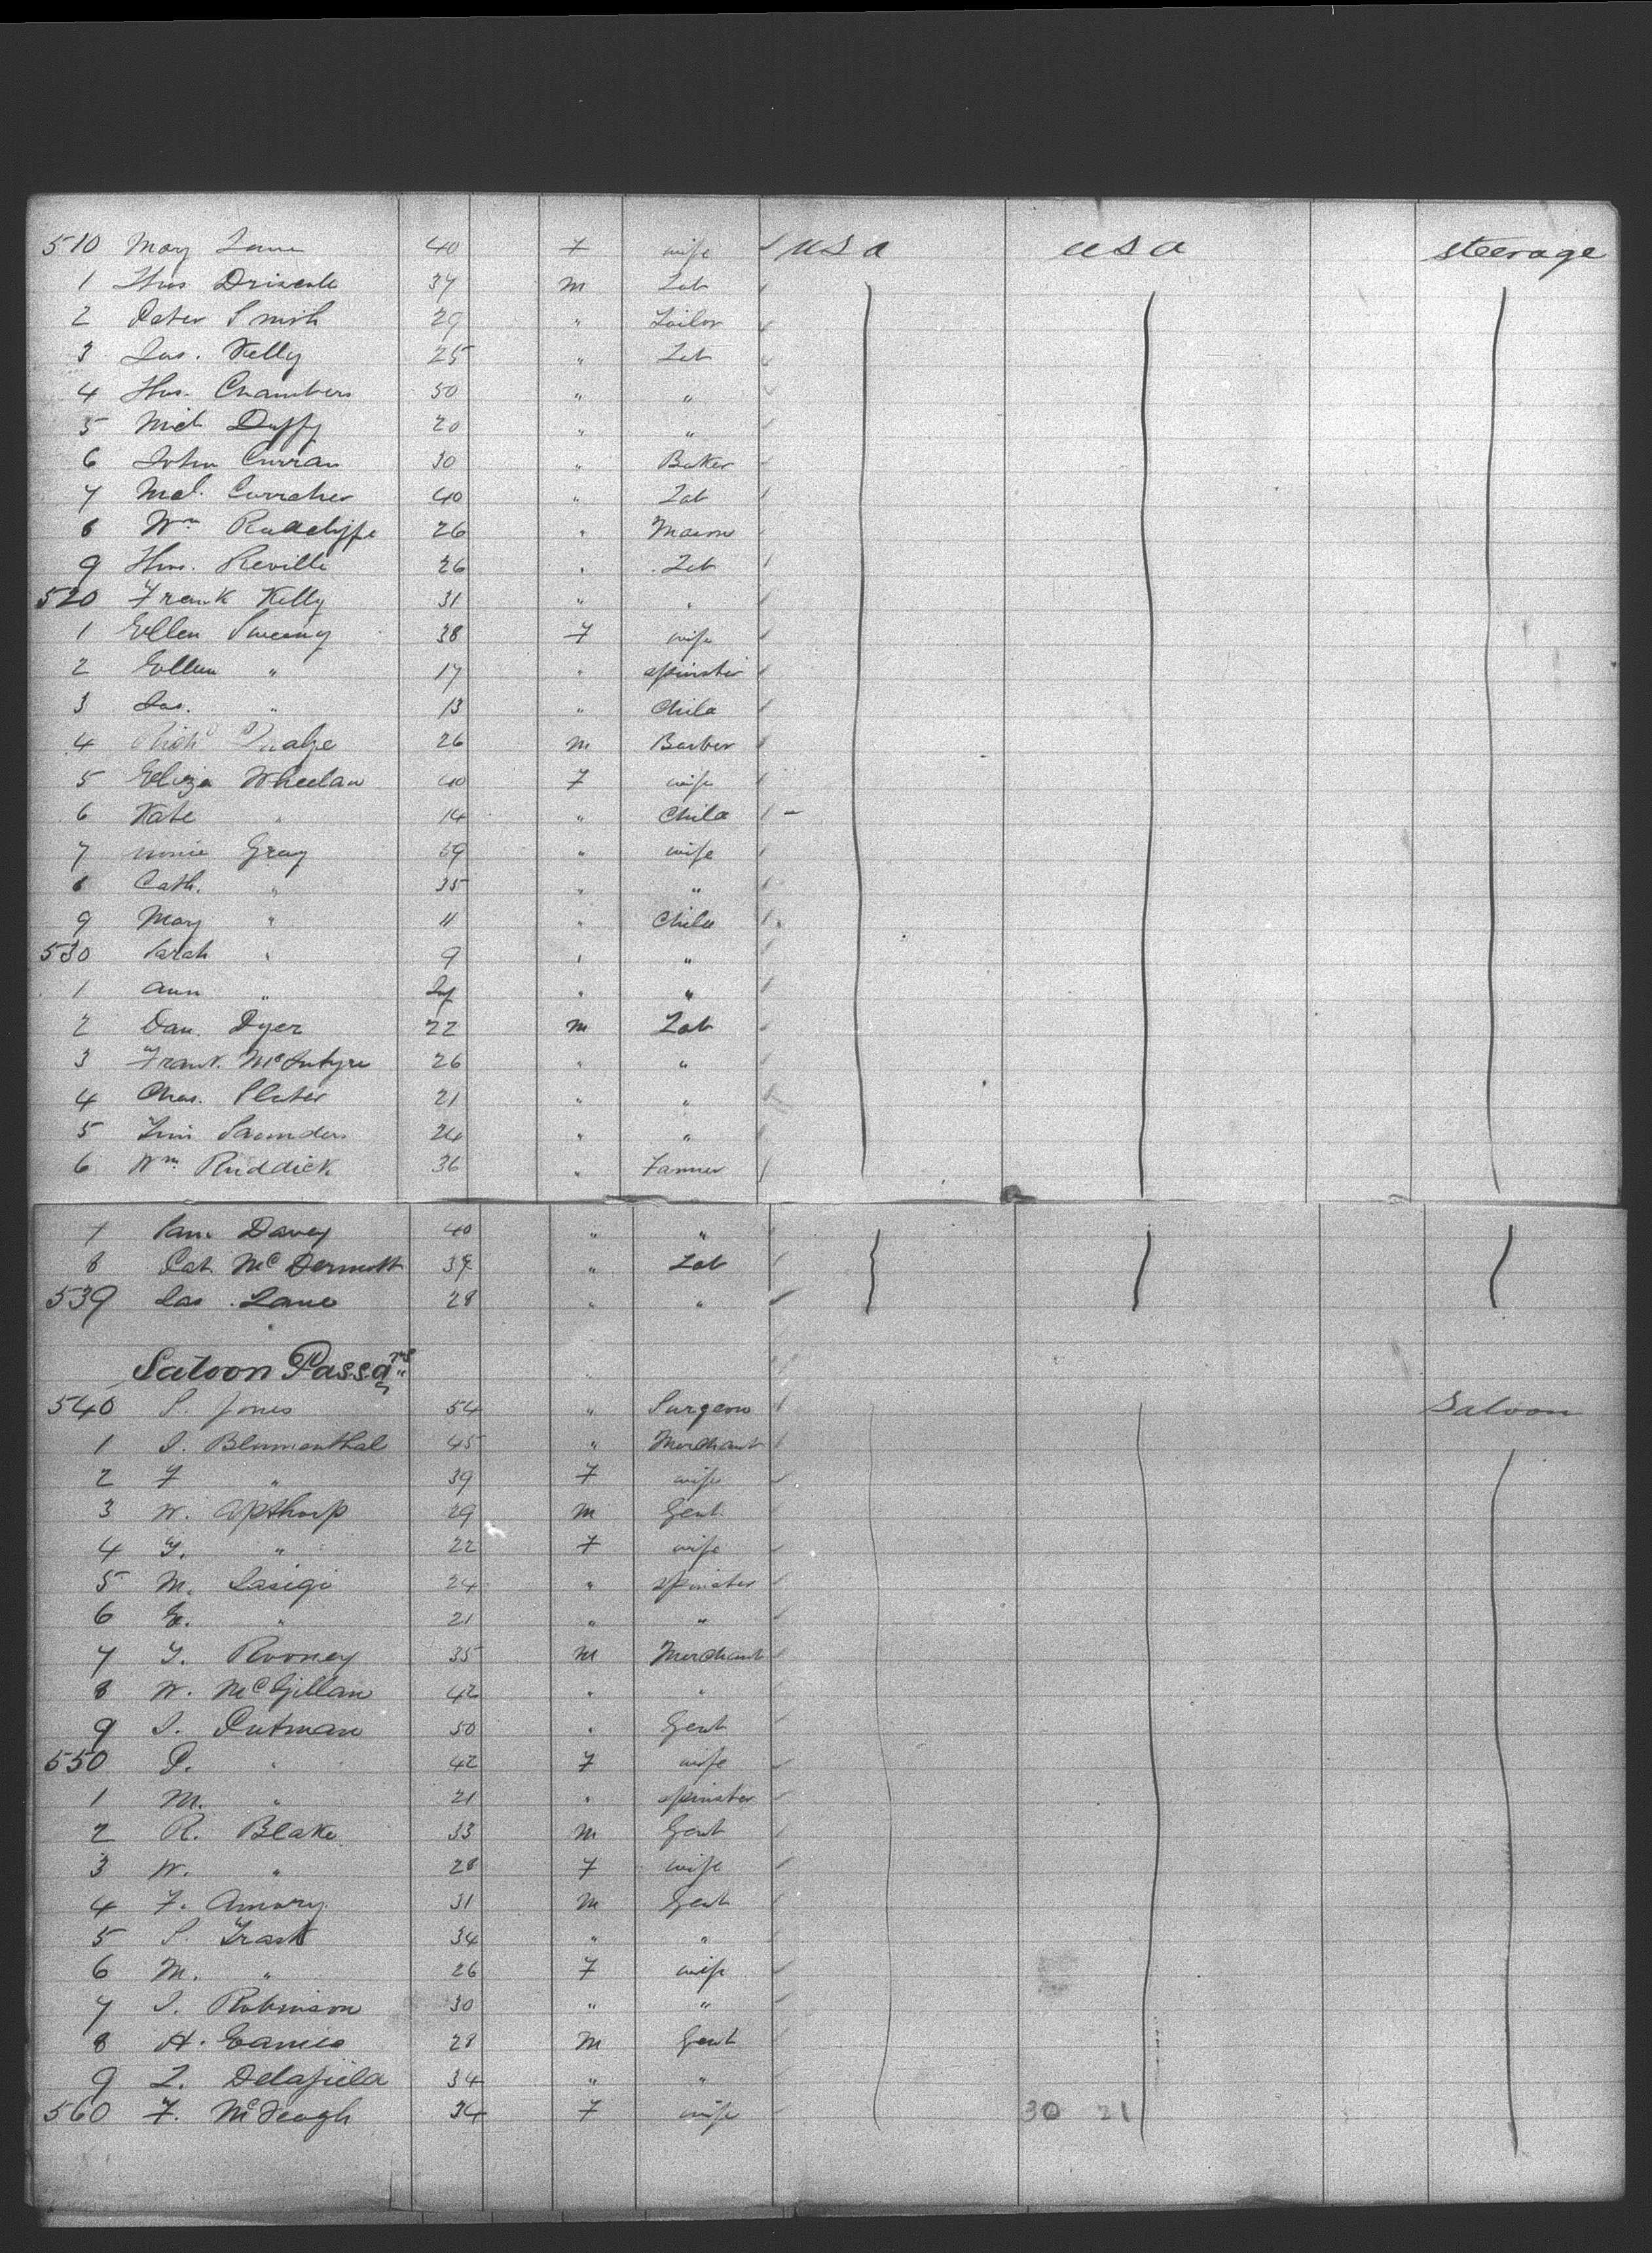 510 May Lane 40 F wife USA USA steerage
1 Thos Driscole 37 M Lab
2 Peter Smith 29 " Tailor
3 Jas. Kelly 25 " Lab
4 Thos. Chambers 50 " "
5 Mich Duffy 20 " "
6 John Curran 30 " Baker
7 Mal. Curraher 40 " Lab
8 Wm Radcliffe 26 " Mason
9 Thos. Reville 26 " Lab
520 Frank Kelly 31 " "
1 Ellen Sweeny 38 F wife
2 Ellen " 17 " spinster
3 Jas. " 13 " Child
4 Richd 26 M Barber
5 Eliza Wheelan 40 F wife
6 Kate " 14 " Child
7 Gray 59 " wife
8 Cath. " 35 " "
9 May " 11 " Child
530 Sarah " 9 " "
1 Ann " Inf " "
2 Dan. Dyer 22 M Lab
3 Frank. McIntyre 26 " "
4 Chas. Slater 21 " "
5 Jim Saunders 24 " "
6 Wm Ruddick 36 " Farmer
7 Sam. Davey 40 " "
8 Pat McDermott 37 " Lab
539 Jas. Lane 28 " "
Saloon Passgrs
540 S. Jones 54 " Surgeon Saloon
1 J. Blumenthal 45 " Merchant
2 F " 39 F wife
3 W. Apthorp 29 M Gent
4 F. " 22 F wife
5 M. Iasigi 24 " spinster
6 E. " 21 " "
7 T. Rooney 35 M Merchant
8 W. McGillan 42 " "
9 J. Putman 50 " Gent
550 P. " 42 F wife
1 M. " 21 " spinster
2 R. Blake 33 M Gent
3 W. " 28 F wife
4 F. Amory 31 M Gent
5 S. Trask 34 " "
6 M. " 26 F wife
7 J. Robinson 30 " "
8 H. Eames 28 M Gent
9 L. Delafield 34 " "
560 F. 34 F wife 30 21